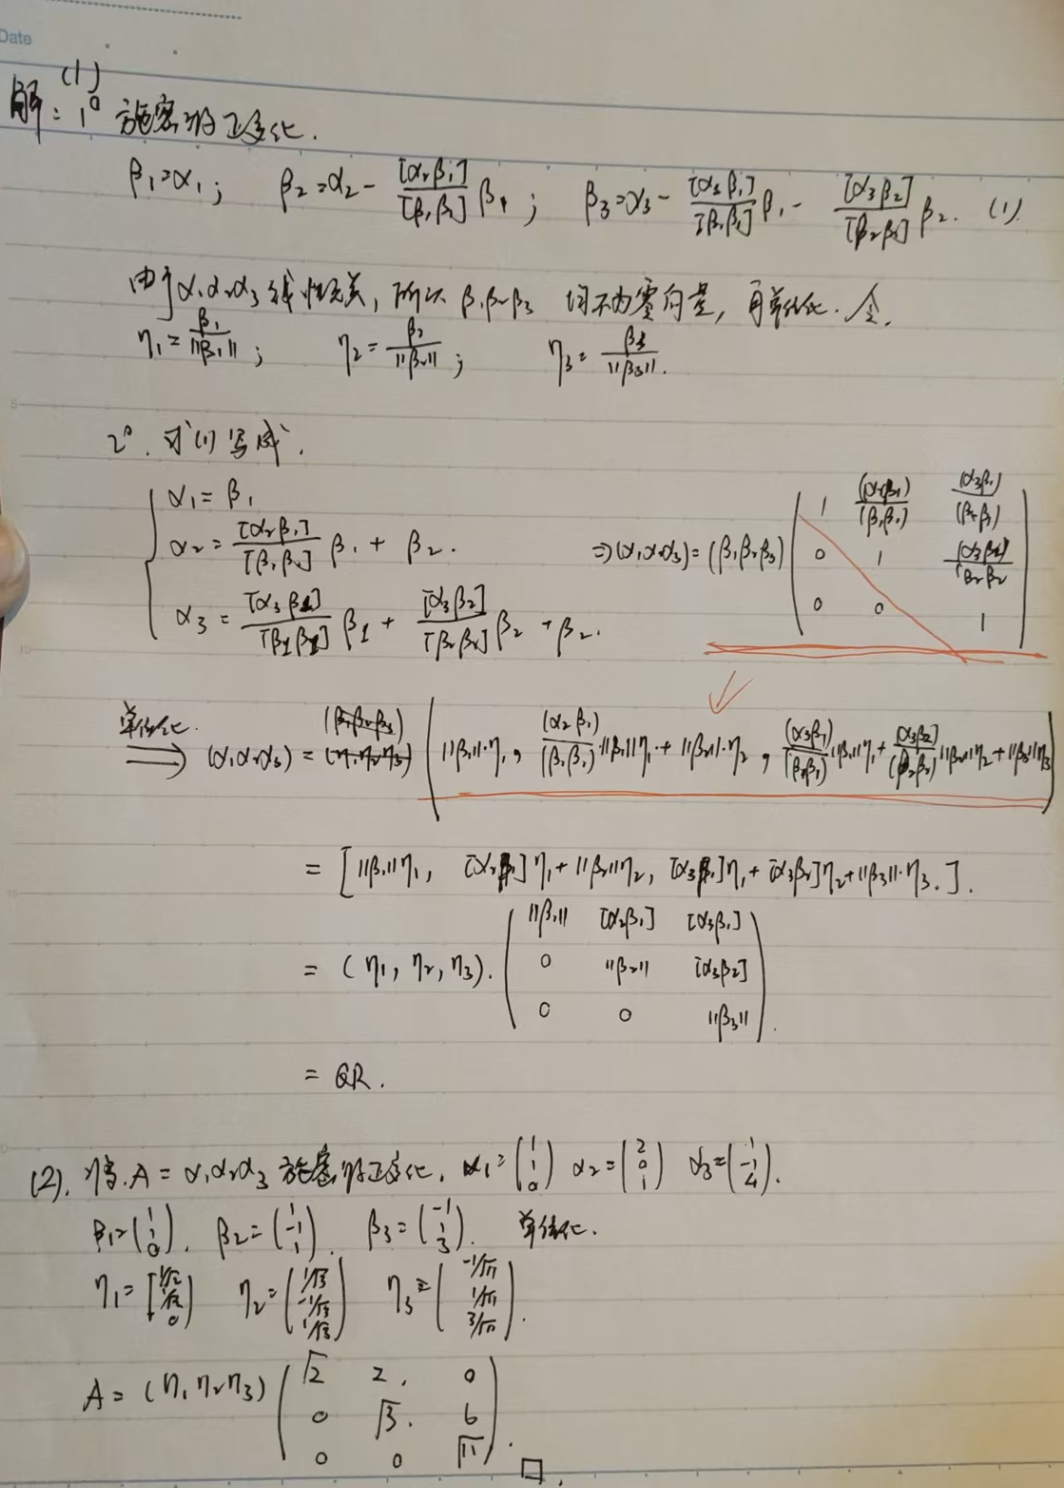 Date
解: (1)
1° 施密特正交化.
β₁=α₁; β₂=α₂-\frac{[α₂β₁]}{[β₁β₁]}β₁; β₃=α₃-\frac{[α₃β₁]}{[β₁β₁]}β₁-\frac{[α₃β₂]}{[β₂β₂]}β₂. (1)
由于α₁α₂α₃线性无关, 所以 β₁β₂β₃ 均不为零向量, 再单位化. 令.
η₁=\frac{β₁}{||β₁||}; η₂=\frac{β₂}{||β₂||}; η₃=\frac{β₃}{||β₃||}.
2°. 才(1)写成.
α₁=β₁
α₂=\frac{[α₂β₁]}{[β₁β₁]}β₁+β₂.
α₃=\frac{[α₃β₁]}{[β₁β₁]}β₁+\frac{[α₃β₂]}{[β₂β₂]}β₂+β₂.
⇒(α₁α₂α₃)=(β₁β₂β₃)
1 \frac{(α₂β₁)}{(β₁β₁)} \frac{(α₃β₁)}{(β₁β₁)}
0 1 \frac{(α₃β₂)}{(β₂β₂}
0 0 1
单位化. ⇒ (α₁α₂α₃)= (||β₁||·η₁, \frac{(α₂β₁)}{(β₁β₁)}·||β₁||η₁+||β₂||·η₂, \frac{(α₃β₁)}{(β₁β₁)}||β₁||η₁+\frac{[α₃β₂]}{(β₂β₂)}||β₂||η₂+||β₃||η₃)
= [||β₁||η₁, [α₂β₁]η₁+||β₂||η₂, [α₃β₁]η₁+[α₃β₂]η₂+||β₃||·η₃.].
= (η₁, η₂, η₃).
||β₁|| [α₂β₁] [α₃β₁]
0 ||β₂|| [α₃β₂]
0 0 ||β₃||
= QR.
(2). 将.A=α₁α₂α₃ 施密特正交化. α₁=(1 1 0) α₂=(2 0 1) α₃=(-1 1 4).
β₁=(1 1 0). β₂=(1 -1 1). β₃=(-1 1 3). 单位化.
η₁=[1/√2 1/√2 0) η₂=(1/√3 -1/√3 1/√3) η₃=(-1/√11 1/√11 3/√11).
A=(η₁η₂η₃)
√2 2. 0
0 √3. 6
0 0 √11
□.